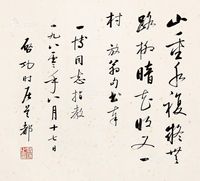 山重水複疑無
路柳暗花明又一
村 放翁句書奉
一博同志指教
一九八三年八月十七日
啟功時居首都